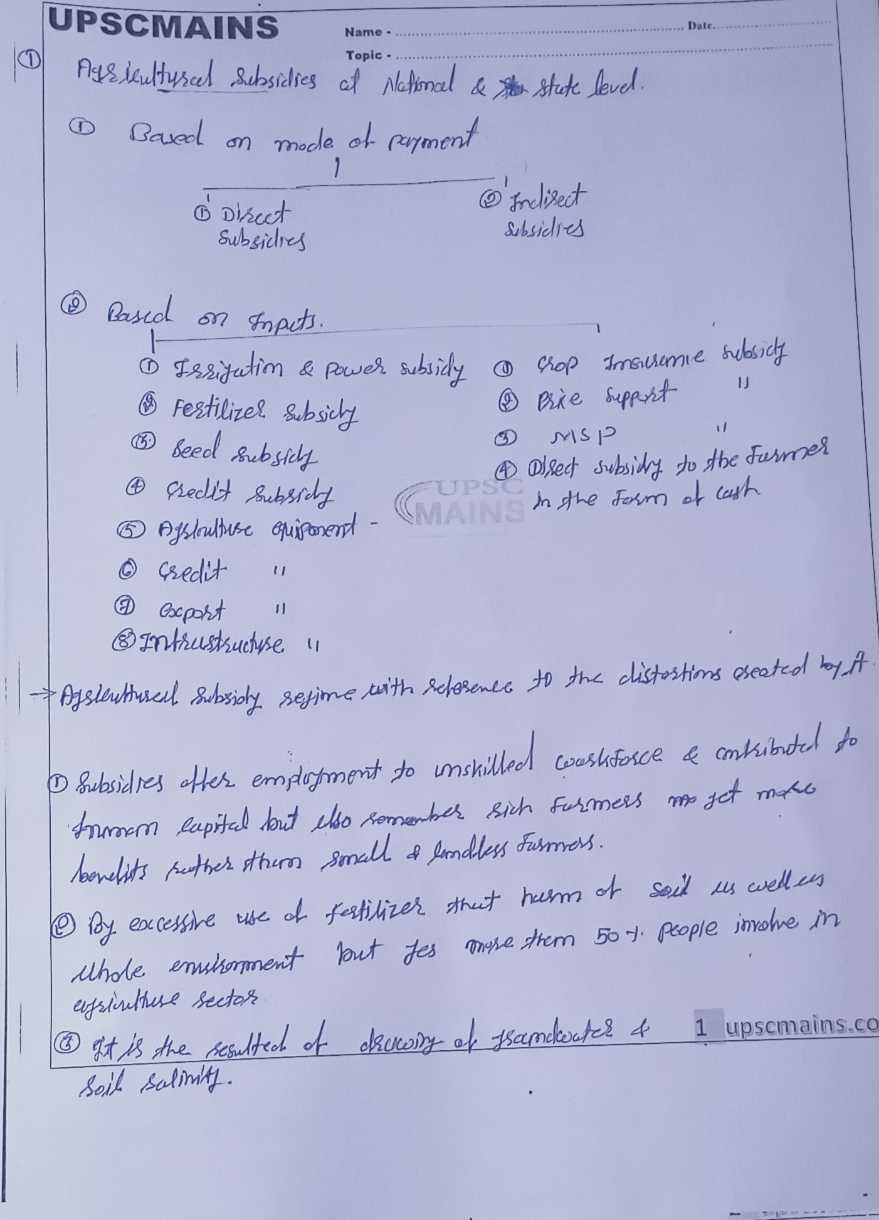 UPSCMAINS
Name - Date.
Topic -
① Agricultural Subsidies at National & state level.
① Based on mode of payment
① Direct Subsidies
② Indirect Subsidies
② Based on Inputs.
① Irrigation & Power subsidy
② Fertilizer Subsidy
③ Seed subsidy
④ Credit Subsidy
⑤ Agriculture equipment -
⑥ Credit "
⑦ export "
⑧ Infrastructure "
① Crop Insurance subsidy
② Price support "
③ MSP "
④ Direct subsidy to the farmer
in the form of cash
UPSC
MAINS
→ Agricultural Subsidy regime with reference to the distortions created by it
① Subsidies offer employment to unskilled workforce & contributed to
human capital but also remember rich farmers get more
benefits rather than small & landless farmers.
② By excessive use of fertilizer that harm of soil as well as
whole environment but yes more than 50 % people involve in
agriculture sector
③ It is the resulted of of &
soil salinity.
1 upscmains.co